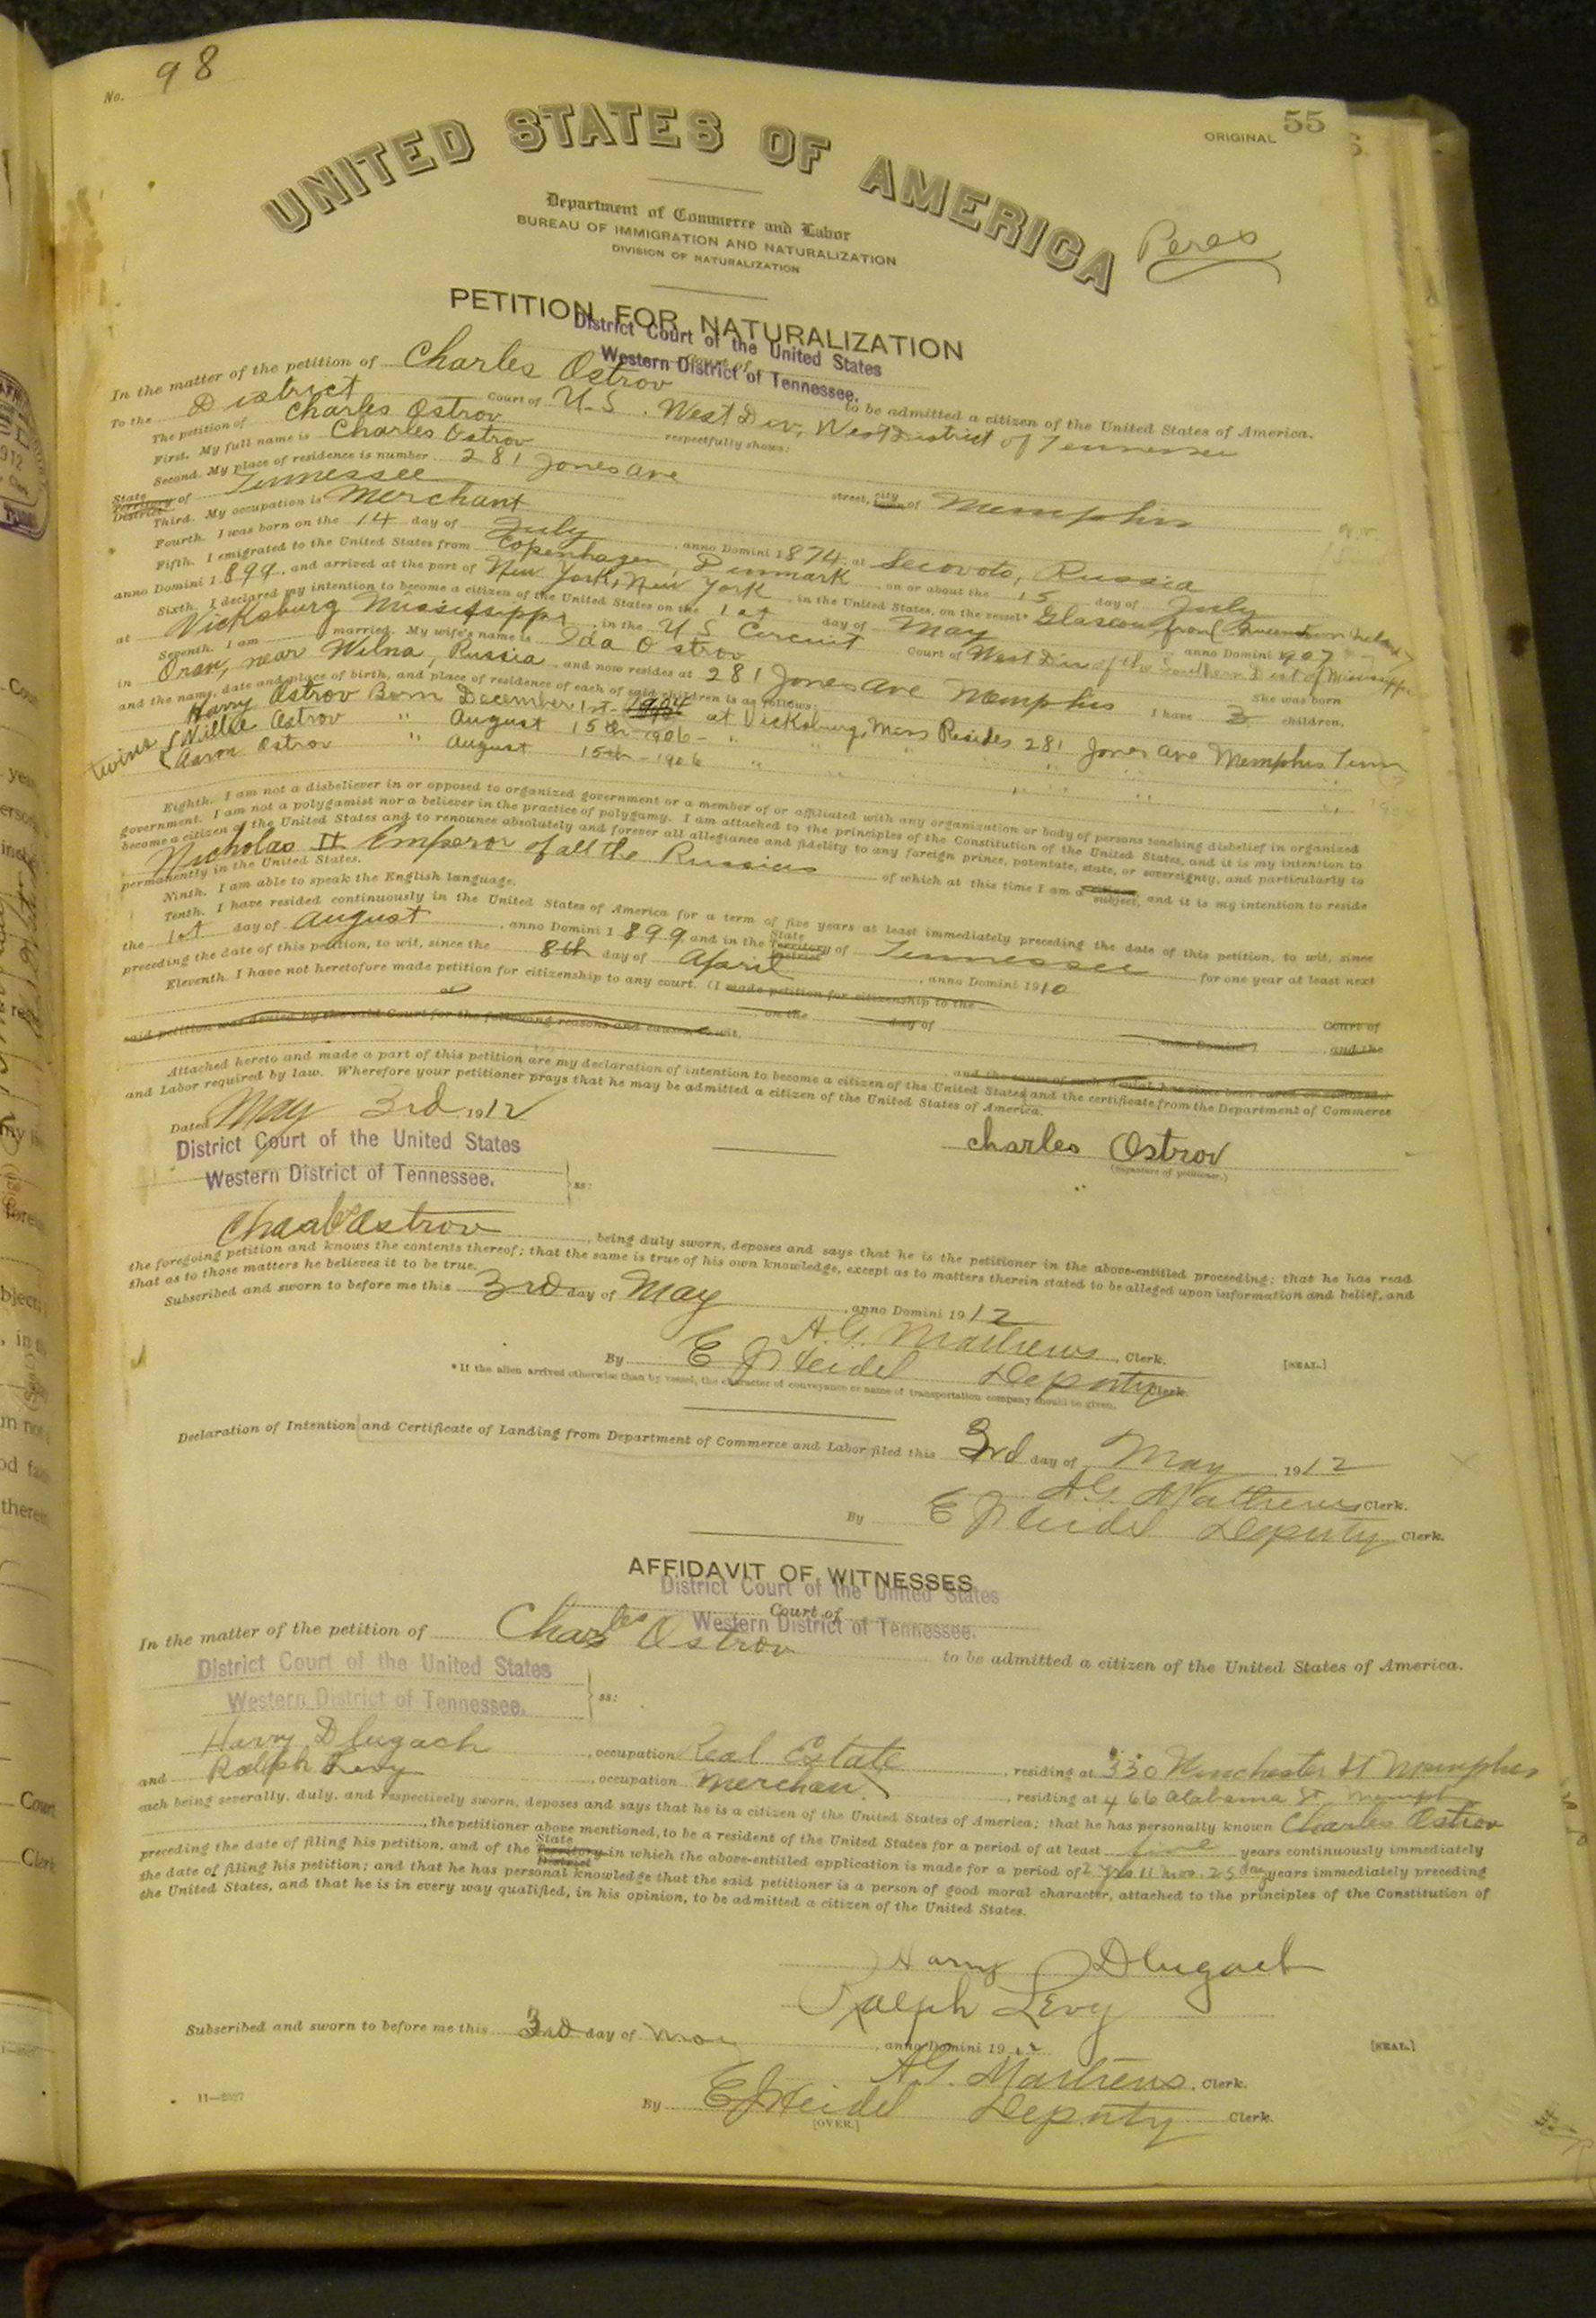 No. 98
ORIGINAL 55
UNITED STATES OF AMERICA
Peres
Department of Commerce and Labor
BUREAU OF IMMIGRATION AND NATURALIZATION
DIVISION OF NATURALIZATION
PETITION FOR NATURALIZATION
District Court of the United States
Court of
Western District of Tennessee.
In the matter of the petition of Charles Ostrov to be admitted a citizen of the United States of America.
To the District Court of U.S. West Div, West District of Tennessee
The petition of Charles Ostrov respectfully shows:
First. My full name is Charles Ostrov
Second. My place of residence is number 281 Jones ave street, city town of Memphis
State Territory District of Tennessee
Third. My occupation is Merchant
Fourth. I was born on the 14 day of July, anno Domini 1874, at Secovoto, Russia
Fifth. I emigrated to the United States from Copenhagen, Denmark on or about the 15 day of July
anno Domini 1899, and arrived at the port of New York, New York in the United States, on the vessel* Glascow, from Queenstown
Sixth. I declared my intention to become a citizen of the United States on the 1st day of May anno Domini 1907
at Vicksburg Mississippi in the U S Circuit Court of West Div of the Southern Dist of Mississippi
Seventh. I am married. My wife's name is Ida Ostrov She was born
in Oran, near Wilna, Russia and now resides at 281 Jones Ave Memphis I have 3 children,
and the name, date and place of birth, and place of residence of each of said children is as follows:
Harry Ostrov Born December 1st 1904 at Vicksburg, Miss Resides 281 Jones ave Memphis Tenn
twins { Willie Ostrov " August 15th 1906 - " " " " "
{ Aaron Ostrov " August 15th - 1906 " " " " "
Eighth. I am not a disbeliever in or opposed to organized government or a member of or affiliated with any organization or body of persons teaching disbelief in organized
government. I am not a polygamist nor a believer in the practice of polygamy. I am attached to the principles of the Constitution of the United States, and it is my intention to
become a citizen of the United States and to renounce absolutely and forever all allegiance and fidelity to any foreign prince, potentate, state, or sovereignty, and particularly to
Nicholas II Emperor of all the Russias of which at this time I am a citizen subject, and it is my intention to reside
permanently in the United States.
Ninth. I am able to speak the English language.
Tenth. I have resided continuously in the United States of America for a term of five years at least immediately preceding the date of this petition, to wit, since
the 1st day of August, anno Domini 1899, and in the State Territory District of Tennessee for one year at least next
preceding the date of this petition, to wit, since the 8th day of April, anno Domini 1910
Eleventh. I have not heretofore made petition for citizenship to any court. (I made petition for citizenship to the Court of
at on the day of anno Domini 1 and the
said petition was denied by the said Court for the following reasons and causes, to wit,
and the cause of such denial has since been cured or removed.)
Attached hereto and made a part of this petition are my declaration of intention to become a citizen of the United States and the certificate from the Department of Commerce
and Labor required by law. Wherefore your petitioner prays that he may be admitted a citizen of the United States of America.
Dated May 3rd, 1912
charles Ostrov
(Signature of petitioner.)
District Court of the United States
Western District of Tennessee. } ss:
Chas Ostrov, being duly sworn, deposes and says that he is the petitioner in the above-entitled proceeding; that he has read
the foregoing petition and knows the contents thereof; that the same is true of his own knowledge, except as to matters therein stated to be alleged upon information and belief, and
that as to those matters he believes it to be true.
Subscribed and sworn to before me this 3rd day of May, anno Domini 1912
A.G. Mathews, Clerk.
[SEAL.]
By E J Heidel Deputy Clerk.
*If the alien arrived otherwise than by vessel, the character of conveyance or name of transportation company should be given.
Declaration of Intention and Certificate of Landing from Department of Commerce and Labor filed this 3rd day of May, 1912
A G. Mathews, Clerk.
By E J Heidel Deputy Clerk.
AFFIDAVIT OF WITNESSES
District Court of the United States
Court of
Western District of Tennessee.
In the matter of the petition of Charles Ostrov to be admitted a citizen of the United States of America.
District Court of the United States
Western District of Tennessee. } ss:
Harry Dlugach, occupation Real Estate, residing at 330 Winchester St Memphis
and Ralph Levy, occupation Merchant, residing at 466 Alabama St Memph
each being severally, duly, and respectively sworn, deposes and says that he is a citizen of the United States of America; that he has personally known Charles Ostrov
, the petitioner above mentioned, to be a resident of the United States for a period of at least five years continuously immediately
preceding the date of filing his petition, and of the State Territory District in which the above-entitled application is made for a period of 2 yrs 11 mos. 25 day years immediately preceding
the date of filing his petition; and that he has personal knowledge that the said petitioner is a person of good moral character, attached to the principles of the Constitution of
the United States, and that he is in every way qualified, in his opinion, to be admitted a citizen of the United States.
Harry Dlugach
Ralph Levy
Subscribed and sworn to before me this 3rd day of May, anno Domini 1912
[SEAL.]
A G. Mathews, Clerk.
11—2527
By E J Heidel Deputy Clerk.
[OVER.]